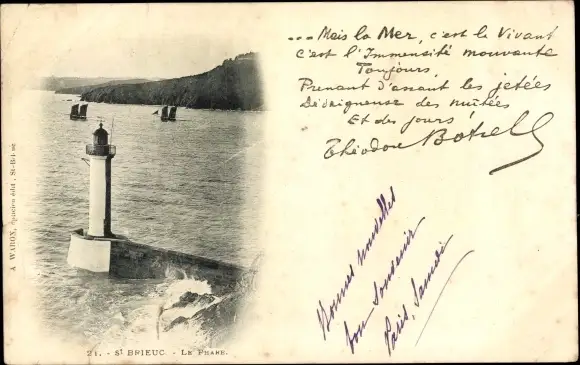 ... Mais la Mer, c'est le Vivant
C'est l'Immensité mouvante
Toujours,
Prenant d'assaut les jetées
Dédaigneuse des nuitées
Et des jours!
Théodore Botrel
Bonnes nouvelles
bon souvenir
Paris, Samedi
A WARON, éditeur, St-Brieuc
21. - St BRIEUC. - LE PHARE.